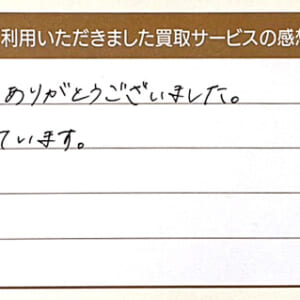 利用いただきました買取サービスの感想
ありがとうございました。
ています。